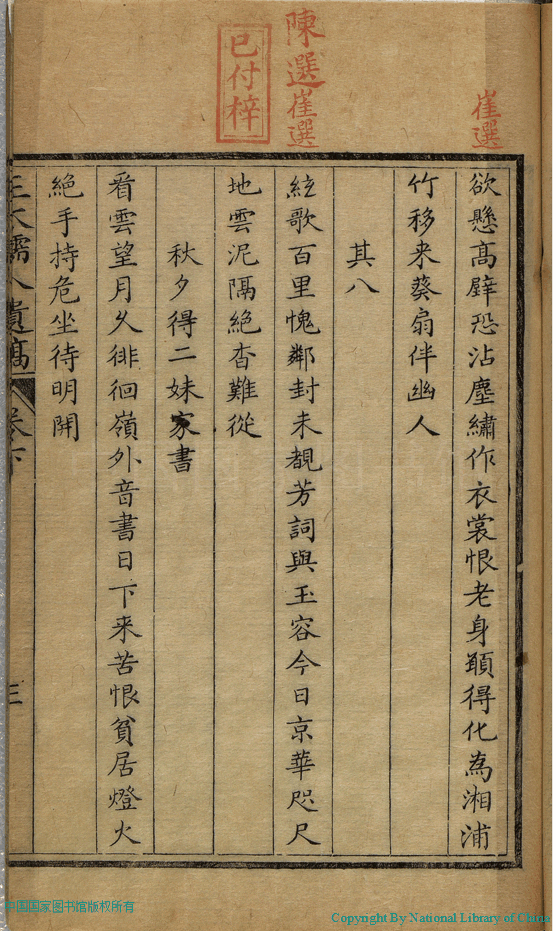 崔選
陳選崔選
已付梓
欲懸高壁恐沾塵繡作衣裳恨老身頋得化為湘浦
竹移来葵扇伴幽人
其八
絃歌百里愧鄰封未覩芳詞與玉容今日京華咫尺
地雲泥隔絶杳難從
秋夕得二妹家書
看雲望月久徘徊嶺外音書日下来苦恨貧居燈火
絶手持危坐待明開
王大孺人遺稿 卷下 三
中国国家图书馆版权所有
Copyright By National Library of China